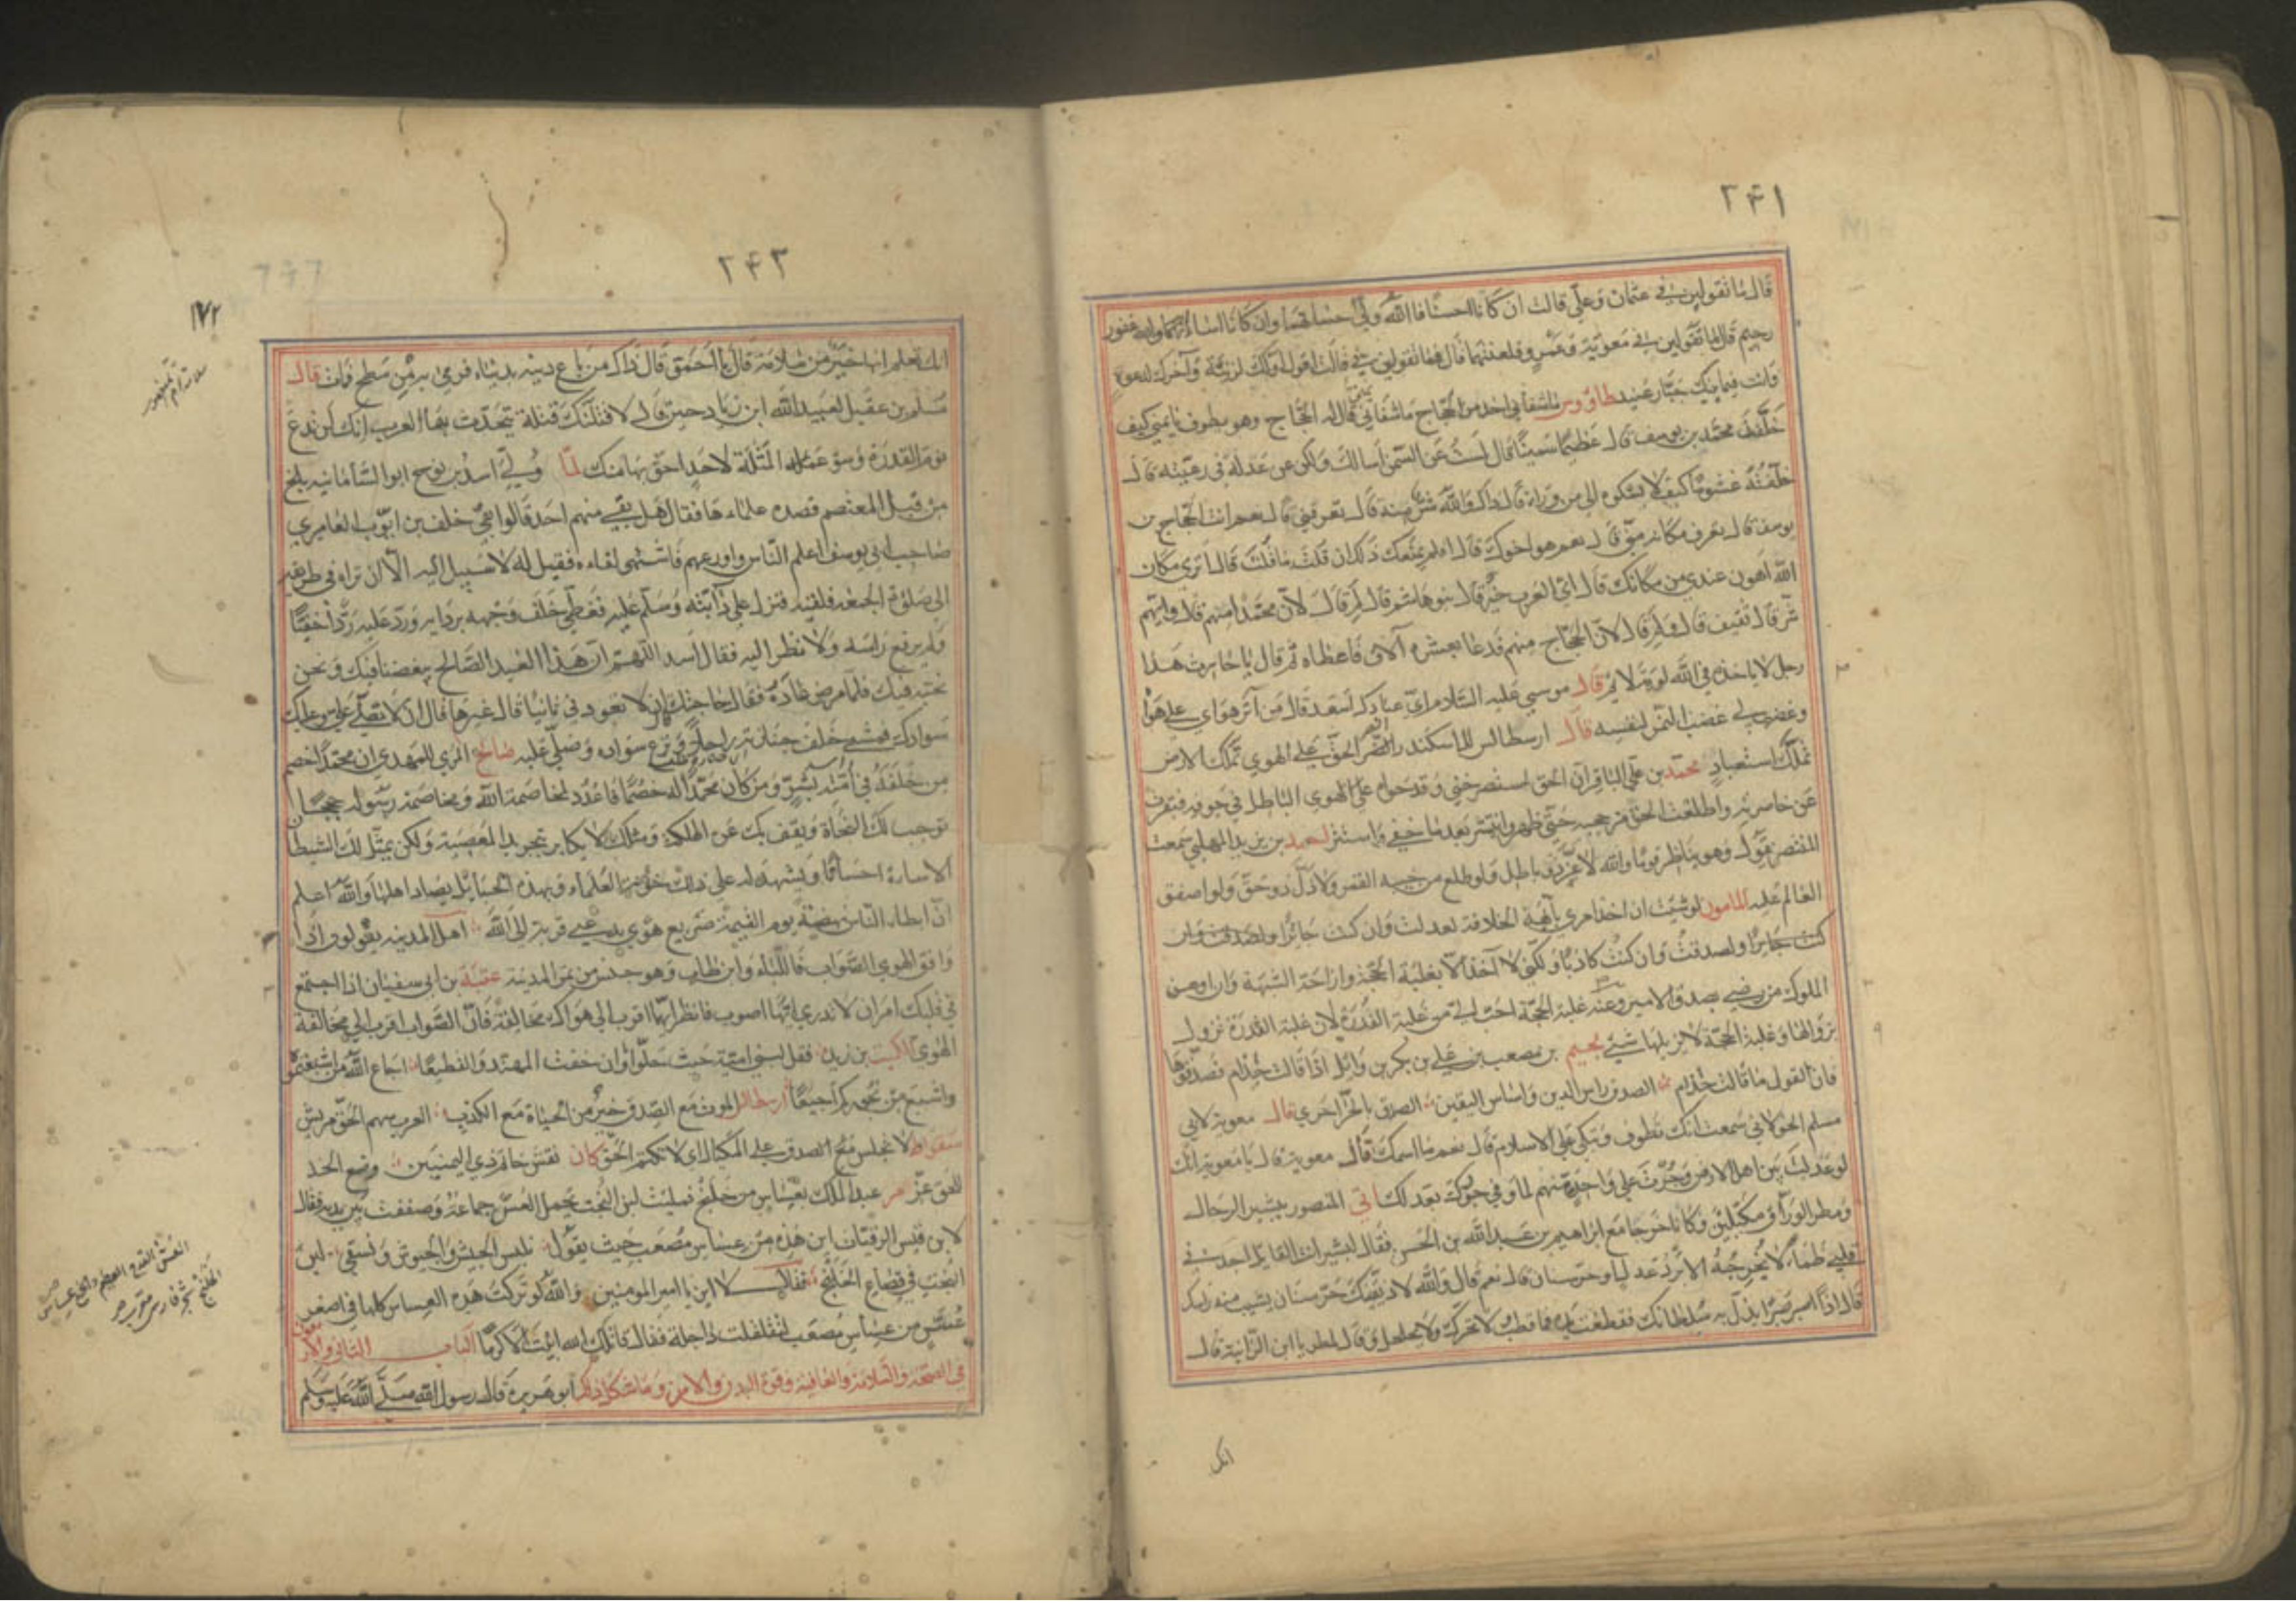 ٢٤١
قال ما تقولين في عثمان وعلي قالت ان كانا احسنا فالله ولي حسابهما وان كانا اساءا فالله غفور
رحيم قال ما تقولين في معوية وعمرو فلعنتهما قال فما تقولين في قالت اقول اولك لزنية وآخرك لدعوة
وانت فيما بينك جبار عنيد طاووس ما شفاني احد من الحجاج ما شفاني يماني قال له الحجاج وهو يطوف يا يمني كيف
خلفت محمد بن يوسف قال عظيما سمينا قال لست عن السمن اسالك ولكن عن عدله في رعيته قال
خلفته غشوما كيف لا يشكوه الى من وراءه قال ذاك والله شر منه قال تعرفني قال نعم انت الحجاج بن
يوسف قال تعرف مكانه مني قال نعم هو اخوك قال اولم يمنعك ذلك ان قلت ما قلت قال اترى مكان
الله اهون عندي من مكانك قال اي العرب خير قال بنو هاشم قال لم قال لان محمدا منهم قال وايهم
شر قال ثقيف قال ولم قال لان الحجاج منهم فدعا بعشرة آلاف فاعطاه ثم قال يا جابر هذا
رجل لا ياخذه في الله لومة لائم قال موسى عليه السلام اي عبادك اسعد قال من آثر هواي على هواه
وغضب لي غضب النمر لنفسه قال ارسطاليس للاسكندر انصر الحق على الهوى تملك الارض
تملك استعباد محمد بن علي الباقر ان الحق استصرخني وقد حواه على الهوى الباطل في جوفه فبقرت
عن خاصرته واطلعت الحق من حجبه حتى ظهر وانتشر بعد ما خفي واستتر احمد بن يزيد المهلبي سمعت
المنتصر يقول وهو يناظر قوما والله لا عز ذو باطل ولو طلع من جيبه القمر ولا ذل ذو حق ولو اصفق
العالم عليه المامون لو شئت ان آخذ امري بابهة الخلافة لعدلت وان كنت جائرا ولصدقت وان
كنت جائرا ولصدقت وان كنت كاذبا ولكني لا آخذ الا بغلبة الحجة وازاحة الشبهة وان اوهن
الملوك من رضي بصدق الامير وعنه غلبة الحجة احب الي من غلبة القدرة لان غلبة القدرة تزول
بزوالها وغلبة الحجة لا يزيلها شئ لجيم بن مصعب بن علي بن بكر بن وائل اذا قالت حذام فصدقوها
فان القول ما قالت حذام الصدق راس الدين واساس اليقين الصدق بالحر احرى قال معوية لابي
مسلم الخولاني سمعت انك تطوف وتبكي على الاسلام قال نعم ما اسمك قال معوية قال يا معوية انك
لو عدلت بين اهل الارض وجرت على واحد منهم لما وفى جورك بعدلك اتي المنصور ببشير الرحال
ومطر الوراق مكبلين وكانا خرجا مع ابراهيم بن عبد الله بن الحسن فقال لبشير انت القايل اجد في
قلبي ظماء لا يخرجه الا برد عدل او حر سنان قال نعم قال والله لاذيقنك حر سنان يشيب منه راسك
قال اذا اصبر صبرا يذل به سلطانك فقطعت يده فما قطب ولا تحرك ولا تحلحل وقال لمطر يا ابن الزانية قال
انك
٢٤٣
١٧٢
انك تعلم انها خير من سلامة قال يا احمق قال ذاك من باع دينه بدنياه فرمي به من سطح فمات قال
مسلم بن عقيل لعبيد الله ابن زياد حين قال لاقتلنك قتلة تتحدث بها العرب انك لن تدع
لؤم القدرة وسوء عمله المثلة لاحد احق بها منك لما ولي اسد بن نوح ابو السامانية بلخ
من قبل المعتصم قصده علماءها فقال هل بقي منهم احد قالوا بقي خلف بن ايوب العامري
صاحب ابي يوسف اعلم الناس واورعهم فاشتهى لقاءه فقيل له لا سبيل اليه الا ان تراه في طريقه
الى صلوة الجمعة فلقيه فنزل على دابته وسلم عليه فغطى خلف وجهه بردايه ورد عليه ردا خفيا
ولم يرفع راسه ولا نظر اليه فقال اسد اللهم ان هذا العبد الصالح يبغضنا فيك ونحن
نحبه فيك فلما مرض عاده فقال حاجتك ان لا تعود في ثانيا قال غيرها قال ان لا تصلي علي وعليك
سوادك فمشى خلف جنازته راجلا ونزع سواده وصلى عليه صالح المري للمهدي ان محمدا خصم
من خلفه في امته بشر ومن كان محمدا له خصما فاعدد لمخاصمة الله ومخاصمة رسوله حججا
توجب لك النجاة ويقف بك عن الهلكة ومثلك لا يكابر بتجويد المعصية ولكن يمثل لك الشيطان
الاساءة احسانا ويشهد له على ذلك خونة العلماء وبهذه الحبايل يصاد اهلها والله اعلم
ان ابطاء الناس نهضة يوم القيمة صريع هوى يدعي قربة الى الله اهل المدينه يقولون اذا
وافق الهوى الصواب فاللباء وابن طاب وهو جنس من تمر المدينة عتبة بن ابي سفيان اذا اجتمع
في قلبك امران لا تدري ايهما اصوب فانظر ايهما اقرب الى هواك مخالفة فان الصواب اقرب الى مخالفة
الهوى الكميت بن زيد فقل لبني امية حيث حلوا وان خفت المهند والقطيعا اجاع الله من اشبعتموه
واشبع من بجوركم اجيعا ارسطاليس الموت مع الصدق خير من الحياة مع الكذب العرب سهم الحق مريش
سقراط لا تجلس مع الصدق على المكيال اي لا تكتم الحق كان نقش خاتم ذي اليمنيين وضع الخد
للحق عز مر عبد الملك بعساس من خلنج فملئت لبن البخت يحمل العس جماعة وصففت بين يديه فقال
لابن قيس الرقيات اين هذه من عساس مصعب حيث يقول تلبس الجيش والجيوش وتسقي لبن
البخت في قصاع الخلنج فقال لا اين يا امير المومنين والله لو تركت هذه العساس كلها في اصغر
عس من عساس مصعب لتقلقلت داخله فقال قاتلك الله ابيت الا كرما الباب الثاني والاربعون
في الصحة والسلامة والعافية وقوة البدن والامن وما شاكل ذلك ابو هريرة قال رسول الله صلى الله عليه وسلم
العس القدح العظيم والجمع عساس
الخلنج شجر فارسي معرب